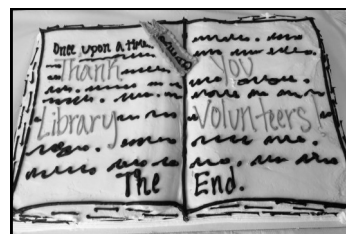 Once upon a time...
Thank You
Library Volunteers!
The End.